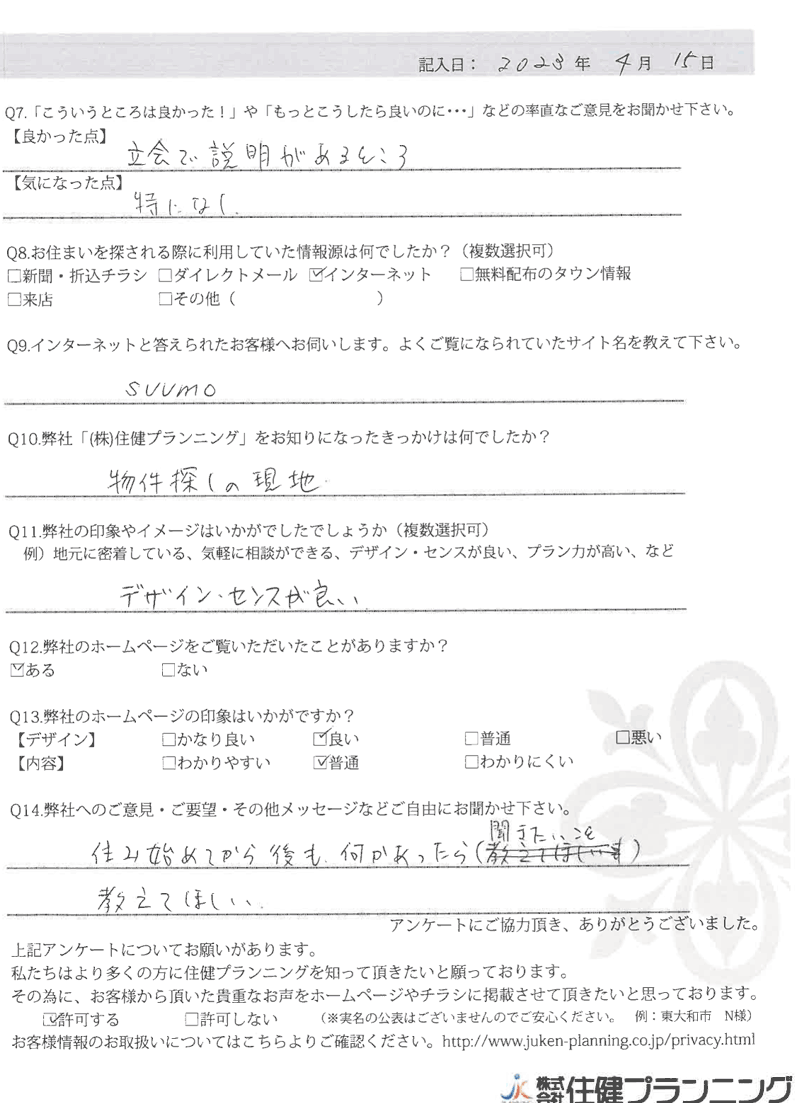 記入日： 2023年 4月 15日
Q7.「こういうところは良かった！」や「もっとこうしたら良いのに・・・」などの率直なご意見をお聞かせ下さい。
【良かった点】
立会で説明があるところ
【気になった点】
特になし
Q8.お住まいを探される際に利用していた情報源は何でしたか？（複数選択可）
□新聞・折込チラシ □ダイレクトメール ☑インターネット □無料配布のタウン情報
□来店 □その他（ ）
Q9.インターネットと答えられたお客様へお伺いします。よくご覧になられていたサイト名を教えて下さい。
SUUMO
Q10.弊社「(株)住健プランニング」をお知りになったきっかけは何でしたか？
物件探しの現地
Q11.弊社の印象やイメージはいかがでしたでしょうか（複数選択可）
例）地元に密着している、気軽に相談ができる、デザイン・センスが良い、プラン力が高い、など
デザイン・センスが良い
Q12.弊社のホームページをご覧いただいたことがありますか？
☑ある □ない
Q13.弊社のホームページの印象はいかがですか？
【デザイン】 □かなり良い ☑良い □普通 □悪い
【内容】 □わかりやすい ☑普通 □わかりにくい
Q14.弊社へのご意見・ご要望・その他メッセージなどご自由にお聞かせ下さい。
聞きたいこと
住み始めてから後も、何かあったら(教えてほしい事)
教えてほしい。
アンケートにご協力頂き、ありがとうございました。
上記アンケートについてお願いがあります。
私たちはより多くの方に住健プランニングを知って頂きたいと願っております。
その為に、お客様から頂いた貴重なお声をホームページやチラシに掲載させて頂きたいと思っております。
☑許可する □許可しない （※実名の公表はございませんのでご安心ください。 例：東大和市 N様）
お客様情報のお取扱いについてはこちらよりご確認ください。http://www.juken-planning.co.jp/privacy.html
JK 株式会社住健プランニング